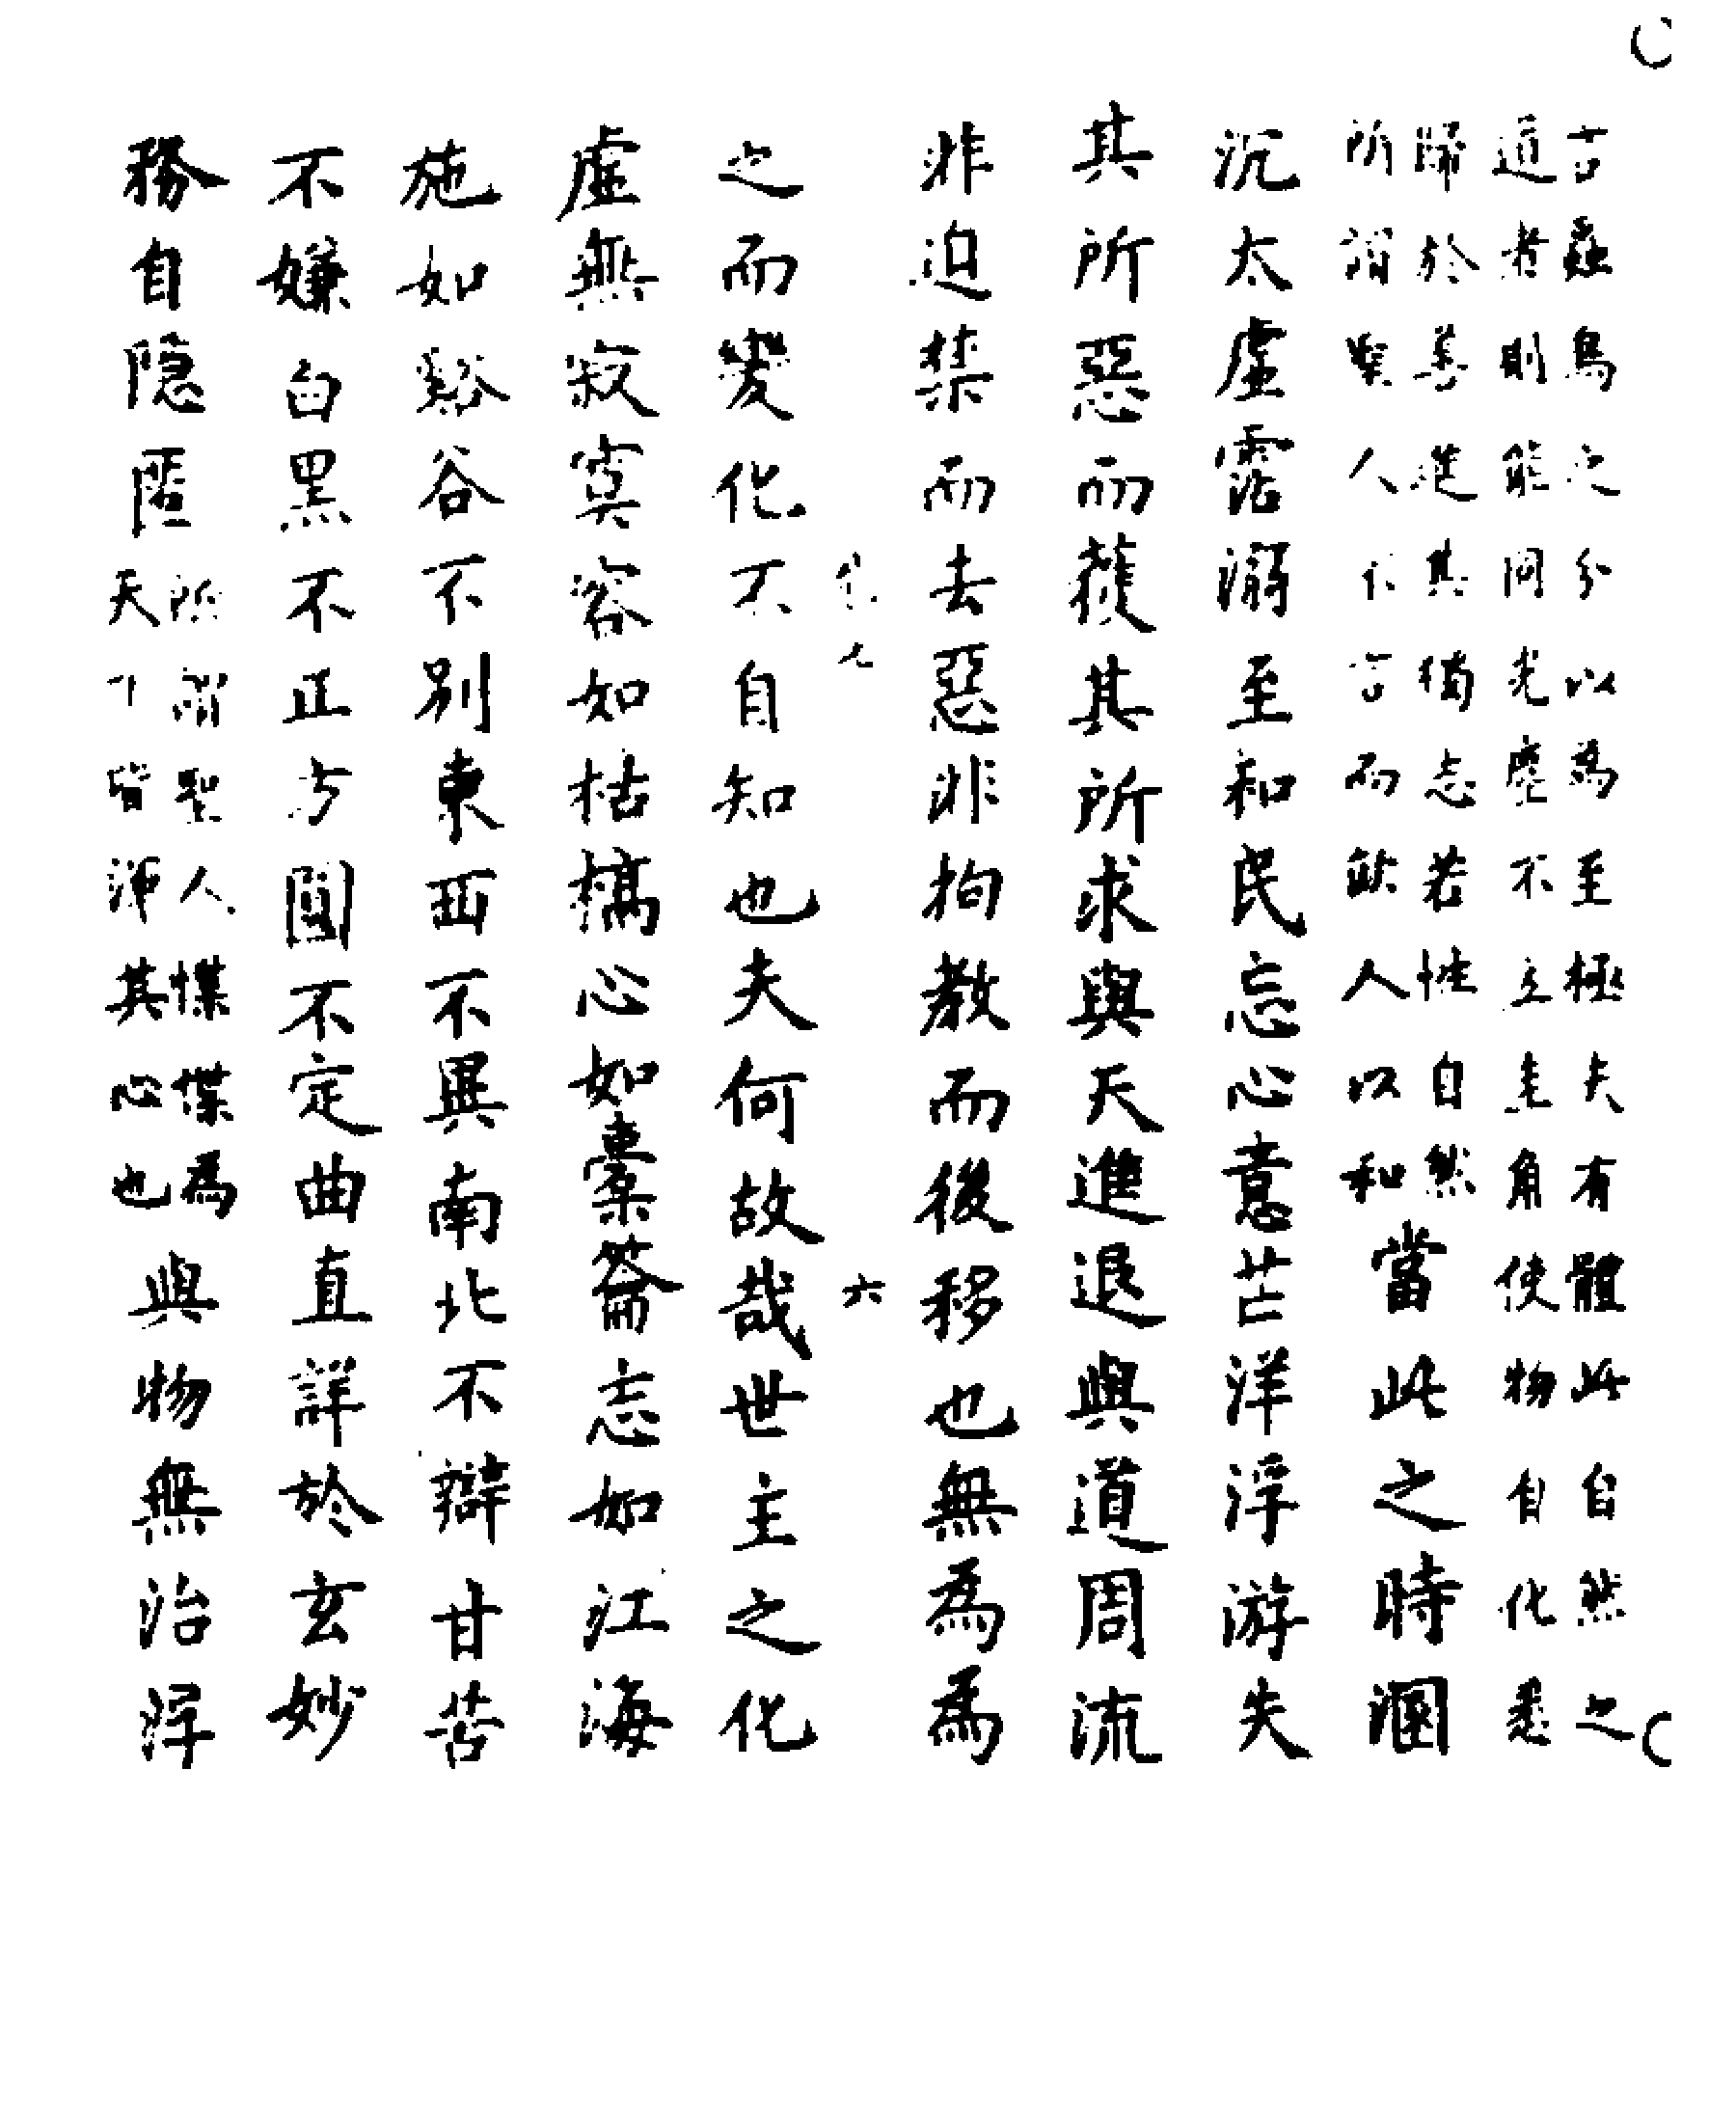 古蟲鳥之分以為至極夫有體此自然之
道者則能同光塵不立圭角使物自化悉
歸於善遂其獨志若性自然
所謂聖人不言而飲人以和
當此之時溷
沉太虛霑溺至和民忘心意芒洋浮游失
其所惡而獲其所求與天進退與道周流
非迫禁而去惡非拘教而後移也無為為
化 七 六
之而變化不自知也夫何故哉世主之化
虛無寂寞容如枯槁心如橐籥志如江海
施如谿谷不別東西不異南北不辯甘苦
不嫌白黑不正方圓不定曲直詳於玄妙
務自隱匿
所謂聖人惵惵為
天下皆渾其心也
與物無治浮